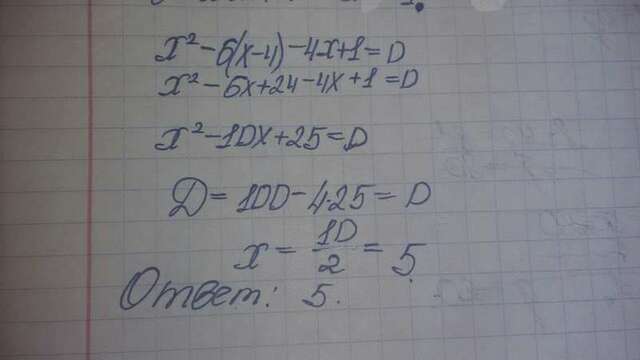 x² - 6(x-4) - 4x+1 = 0
x² - 6x+24 - 4x+1 = 0
x² - 10x+25 = 0
D = 100 - 4·25 = 0
x = 10/2 = 5
Ответ: 5.